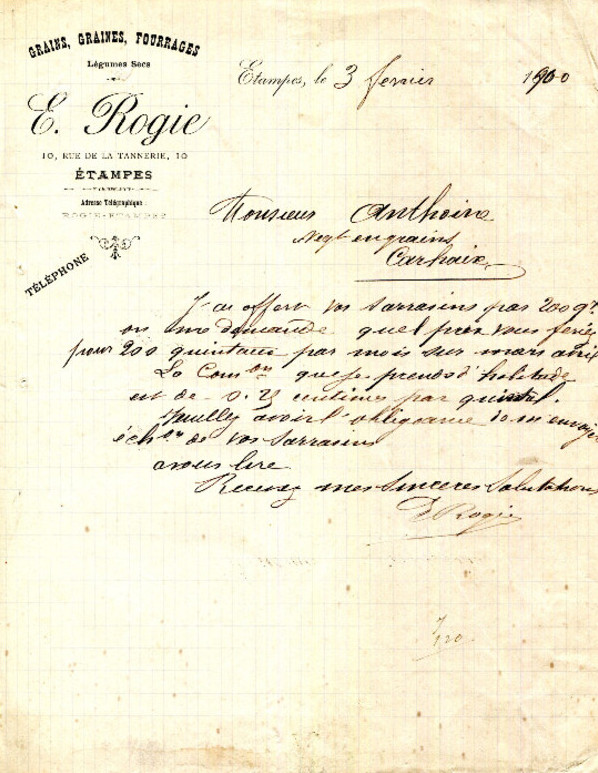 GRAINS, GRAINES, FOURRAGES
Légumes Secs
E. Rogie
10, RUE DE LA TANNERIE, 10
ÉTAMPES
Adresse Télégraphique :
ROGIE-ETAMPES
TÉLÉPHONE
Etampes, le 3 fevrier 1900
Monsieur Anthoine
Negt en grains
Carhaix
J'ai offert vos sarrasins par 200 qx
on me demande quel prix vous feriez
pour 200 quintaux par mois sur mars avril
La Comon que je prends d'habitude
est de 0.25 centimes par quintal.
Veuillez avoir l'obligeance de m'envoyer
échon de vos sarrasins
a vous lire
Recevez mes sinceres Salutations
E Rogie